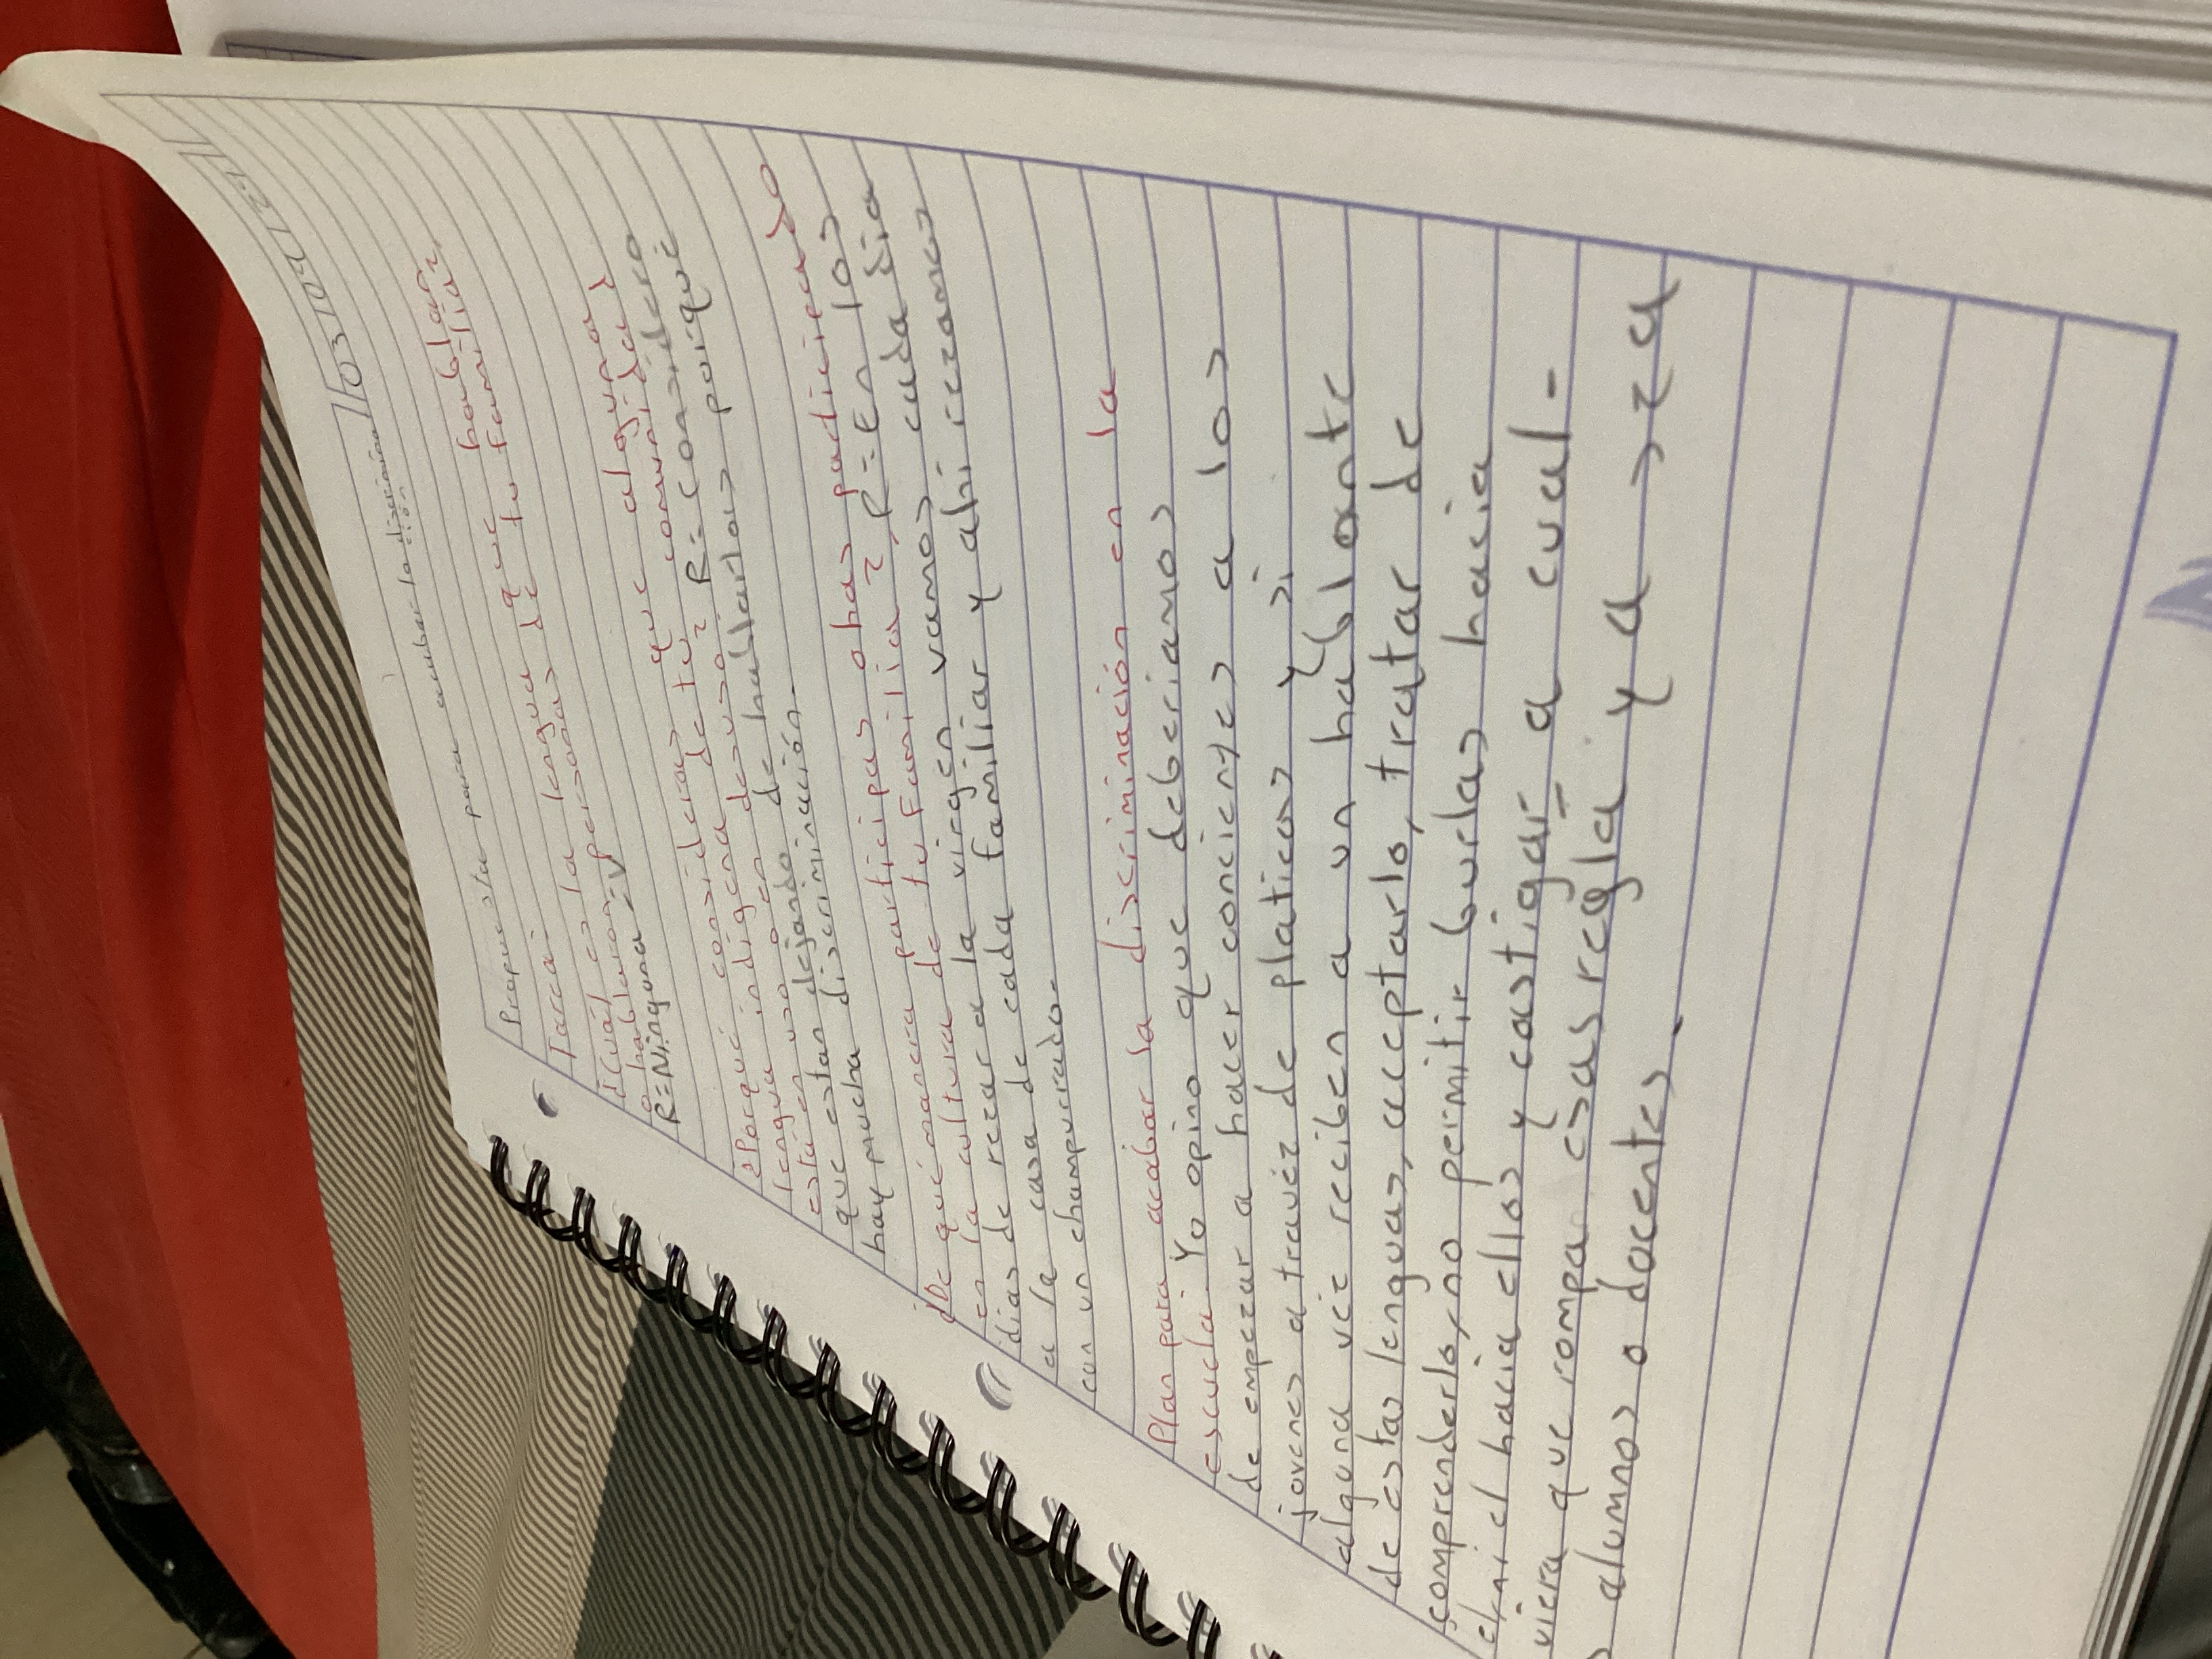 03/04/24
Propuesta para acabar la discriminación
Tarea:
¿Cuál es la lengua que hablan
o hablaron personas de tu familia?
R=Ninguna =V
¿Porqué consideras que alguna
lengua indigena de tu comunidad
está en uso o en desuso? R= Considero
que estan dejando de hablarlas porqué
hay mucha discriminación.
¿De qué manera participas o has participado
en la cultura de tu familia?, R= En los
dias de rezar a la virgen vamos cada dia
a la casa de cada familiar y ahi rezamos
con un champurrado.
Plan para acabar la discriminación en la
escuela: Yo opino que deberiamos
de empezar a hacer concientes a los
jovenes a travéz de platicas y si
alguna véz reciben a un hablante
de estas lenguas, aceptarlo, tratar de
comprenderlo, no permitir burlas hacia
él ni hacia ellos y castigar a cual-
viera que rompa esas regla y a sea
alumnos o docentes.